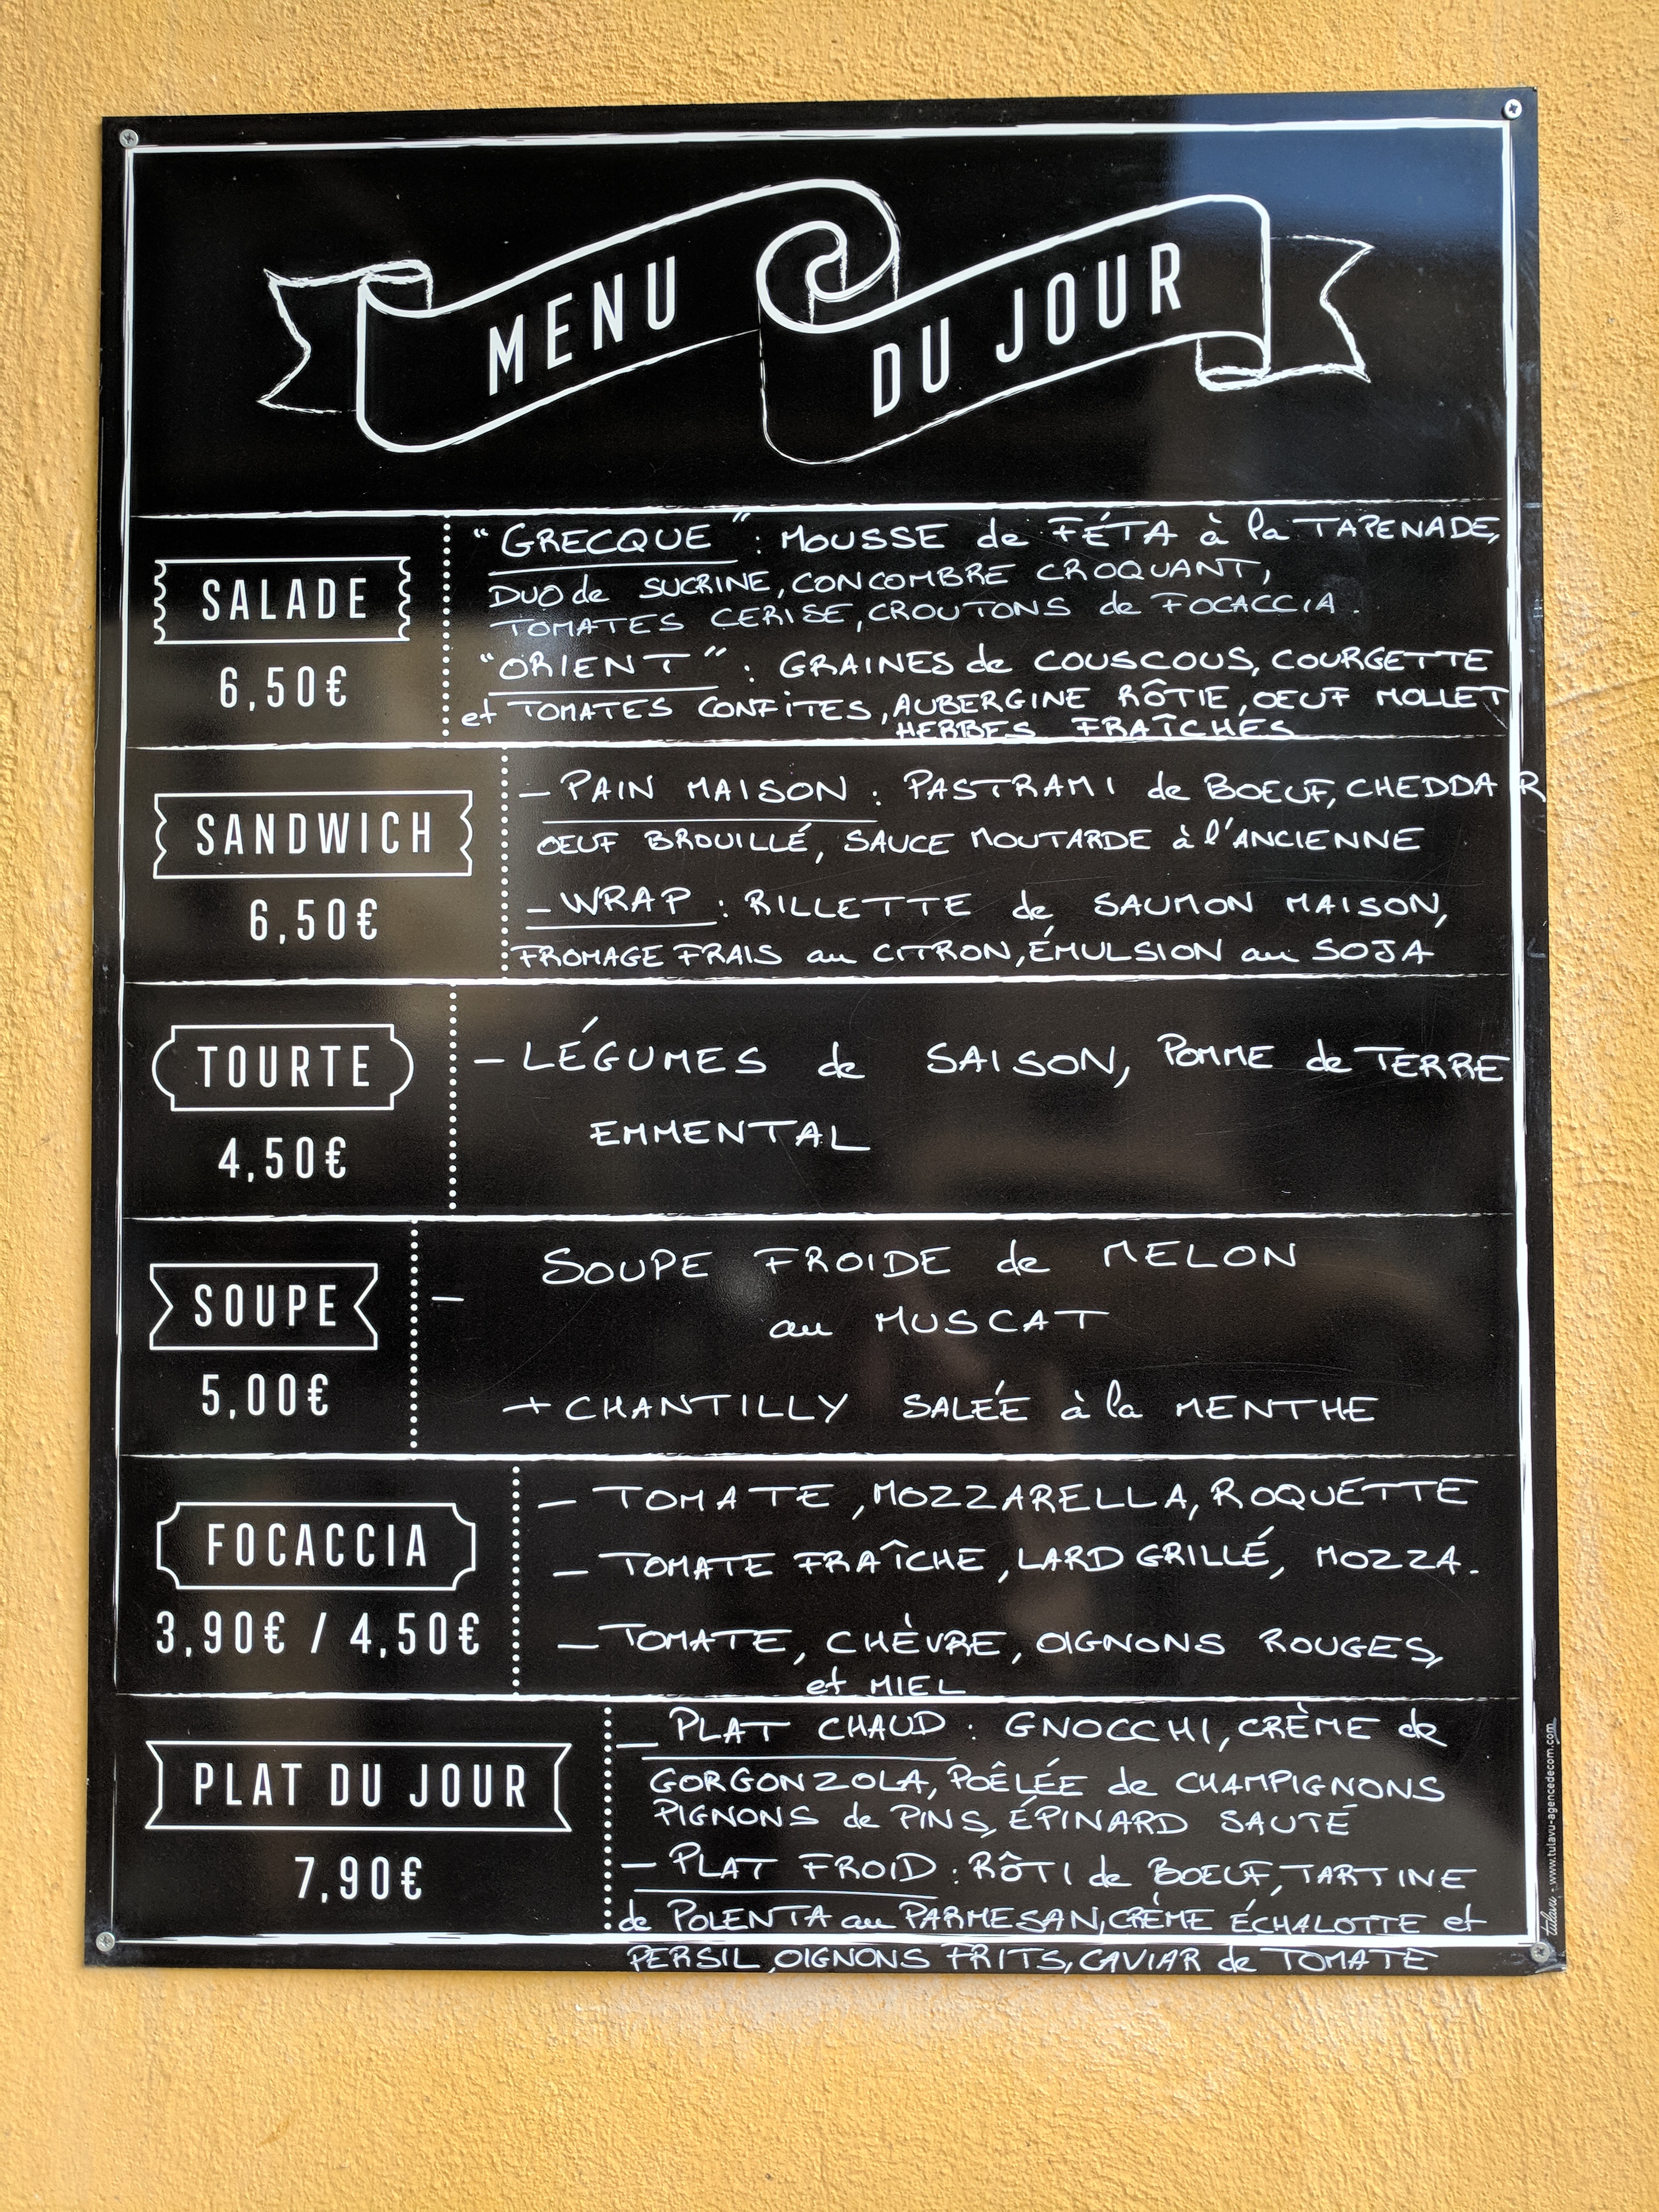 MENU DU JOUR
SALADE
6,50€
"GRECQUE" : MOUSSE de FÉTA à la TAPENADE,
DUO de SUCRINE, CONCOMBRE CROQUANT,
TOMATES CERISE, CROUTONS de FOCACCIA.
"ORIENT" : GRAINES de COUSCOUS, COURGETTE
et TOMATES CONFITES, AUBERGINE RÔTIE, OEUF MOLLET
HERBES FRAÎCHES
SANDWICH
6,50€
- PAIN MAISON : PASTRAMI de BOEUF, CHEDDAR
OEUF BROUILLÉ, SAUCE MOUTARDE à l'ANCIENNE
- WRAP : RILLETTE de SAUMON MAISON,
FROMAGE FRAIS au CITRON, ÉMULSION au SOJA
TOURTE
4,50€
- LÉGUMES de SAISON, POMME de TERRE
EMMENTAL
SOUPE
5,00€
- SOUPE FROIDE de MELON
au MUSCAT
+ CHANTILLY SALÉE à la MENTHE
FOCACCIA
3,90€ / 4,50€
- TOMATE, MOZZARELLA, ROQUETTE
- TOMATE FRAÎCHE, LARD GRILLÉ, MOZZA.
- TOMATE, CHÈVRE, OIGNONS ROUGES,
et MIEL
PLAT DU JOUR
7,90€
- PLAT CHAUD : GNOCCHI, CRÈME de
GORGONZOLA, POÊLÉE de CHAMPIGNONS
PIGNONS de PINS, ÉPINARD SAUTÉ
- PLAT FROID : RÔTI de BOEUF, TARTINE
de POLENTA au PARMESAN, CRÈME ÉCHALOTTE et
PERSIL, OIGNONS FRITS, CAVIAR de TOMATE
tulavu - www.tulavu-agencedecom.com